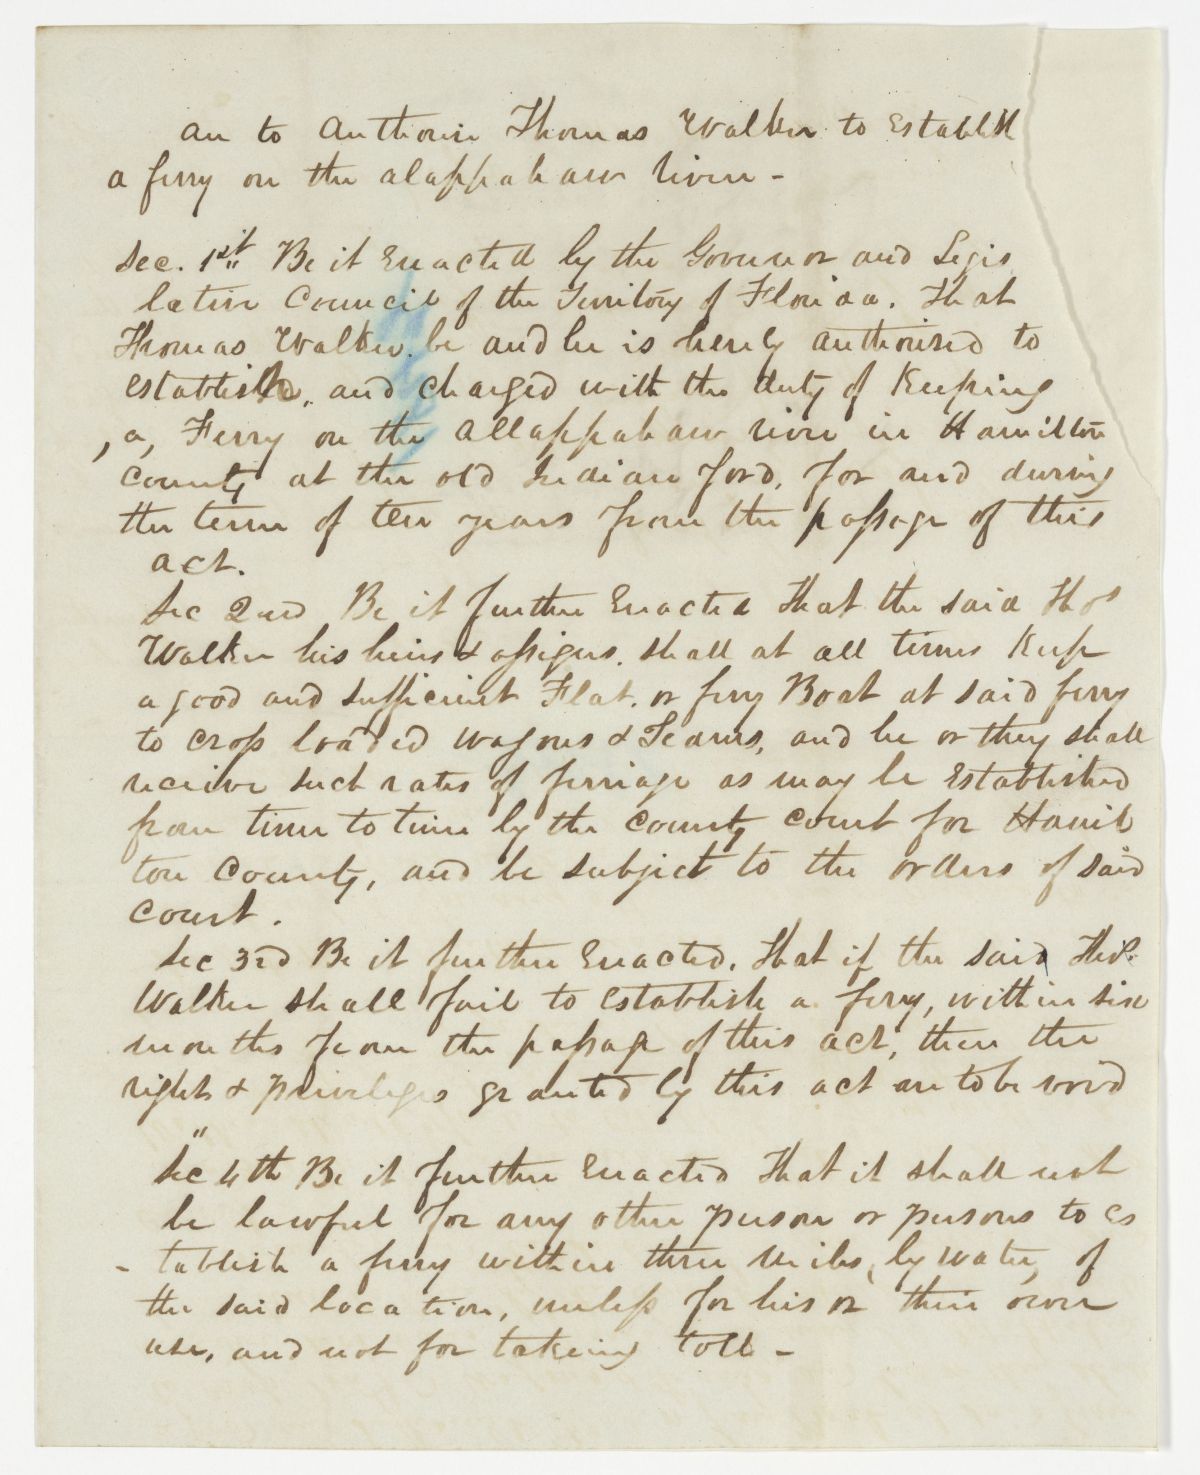 an to Authorise Thomas Walker to Establish
a ferry on the alappahaw river -
Sec. 1st Be it Enacted by the Governor and Legis
lative Council of the Territory of Florida. That
Thomas Walker. be and he is hereby authorised to
establish, and charged with the duty of Keeping
, a, Ferry on the Allappahaw river in Hamilton
County at the old Indian ford, for and during
the term of ten years from the passage of this
act.
Sec 2nd Be it further Enacted That the said Thos
Walker his heirs & assigns. shall at all times Keep
a good and sufficient Flat. or ferry Boat at said ferry
to cross loaded wagons & Teams, and he or they shall
receive such rates of ferriage as may be Established
from time to time by the county court for Hamil
ton County, and be subject to the orders of said
Court.
Sec 3rd Be it further Enacted. That if the said Thos.
Walker shall fail to establish a ferry, within six
months from the passage of this act, then the
rights & privileges granted by this act are to be void
"
Sec 4th Be it further Enacted That it shall not
be lawful for any other person or persons to es
- tablish a ferry within three miles, by water, of
the said location, unless for his or their own
use, and not for takeing toll -